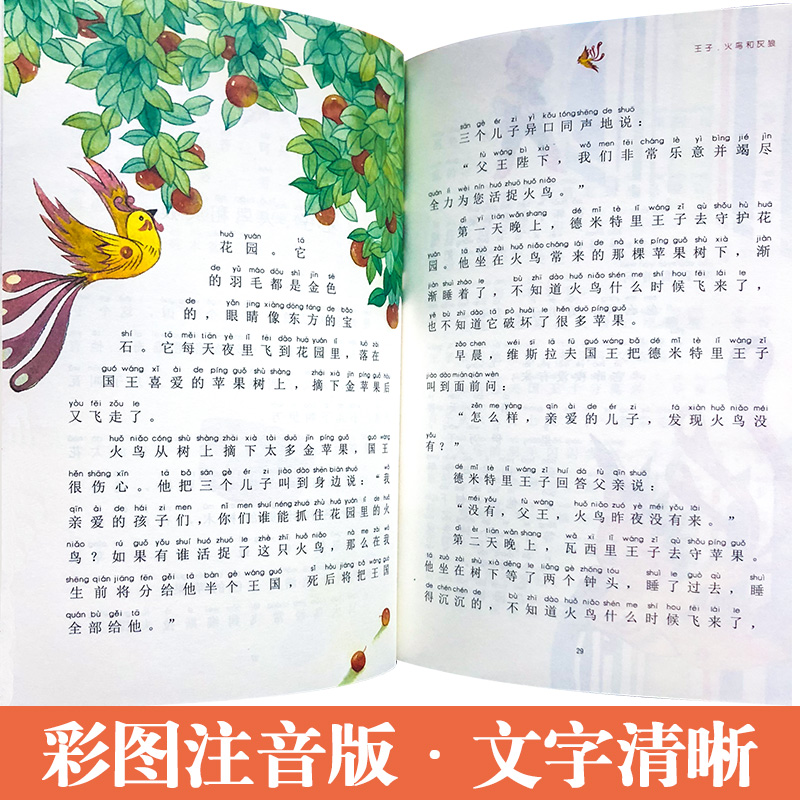 huā yuán tā
花园。它
de yǔ máo dōu shì jīn sè
的羽毛都是金色
de yǎn jing xiàng dōng fāng de bǎo
的，眼睛像东方的宝
shí tā měi tiān yè lǐ fēi dào huā yuán lǐ luò zài
石。它每天夜里飞到花园里，落在
guó wáng xǐ ài de píng guǒ shù shàng zhāi xià jīn píng guǒ hòu
国王喜爱的苹果树上，摘下金苹果后
yòu fēi zǒu le
又飞走了。
huǒ niǎo cóng shù shàng zhāi xià tài duō jīn píng guǒ guó wáng
火鸟从树上摘下太多金苹果，国王
hěn shāng xīn tā bǎ sān gè ér zi jiào dào shēn biān shuō wǒ
很伤心。他把三个儿子叫到身边说：“我
qīn ài de hái zi men nǐ men shuí néng zhuā zhù huā yuán lǐ de huǒ
亲爱的孩子们，你们谁能抓住花园里的火
niǎo rú guǒ yǒu shuí huó zhuō le zhè zhī huǒ niǎo nà me zài wǒ
鸟？如果有谁活捉了这只火鸟，那么在我
shēng qián jiāng fēn gěi tā bàn gè wáng guó sǐ hòu jiāng bǎ wáng guó
生前将分给他半个王国，死后将把王国
quán bù gěi tā
全部给他。”
王子、火鸟和灰狼
sān gè ér zi yì kǒu tóng shēng de shuō
三个儿子异口同声地说：
fù wáng bì xià wǒ men fēi cháng lè yì bìng jié jìn
“父王陛下，我们非常乐意并竭尽
quán lì wèi nín huó zhuō huǒ niǎo
全力为您活捉火鸟。”
dì yī tiān wǎn shang dé mǐ tè lǐ wáng zǐ qù shǒu hù huā
第一天晚上，德米特里王子去守护花
yuán tā zuò zài huǒ niǎo cháng lái de nà kē píng guǒ shù xià jiàn
园。他坐在火鸟常来的那棵苹果树下，渐
jiàn shuì zháo le bù zhī dào huǒ niǎo shén me shí hou fēi lái le
渐睡着了，不知道火鸟什么时候飞来了，
yě bù zhī dào tā pò huài le hěn duō píng guǒ
也不知道它破坏了很多苹果。
zǎo chen wéi sī lā fū guó wáng bǎ dé mǐ tè lǐ wáng zǐ
早晨，维斯拉夫国王把德米特里王子
jiào dào miàn qián wèn
叫到面前问：
zěn me yàng qīn ài de ér zi fā xiàn huǒ niǎo méi
“怎么样，亲爱的儿子，发现火鸟没
yǒu
有？”
dé mǐ tè lǐ wáng zǐ huí dá fù qīn shuō
德米特里王子回答父亲说：
méi yǒu fù wáng huǒ niǎo zuó yè méi yǒu lái
“没有，父王，火鸟昨夜没有来。”
dì èr tiān wǎn shang wǎ xī lǐ wáng zǐ qù shǒu píng guǒ
第二天晚上，瓦西里王子去守苹果。
tā zuò zài shù xià děng le liǎng gè zhōng tóu shuì le guò qù shuì
他坐在树下等了两个钟头，睡了过去，睡
de chén chén de bù zhī dào huǒ niǎo shén me shí hou fēi lái le
得沉沉的，不知道火鸟什么时候飞来了，
29
彩图注音版·文字清晰